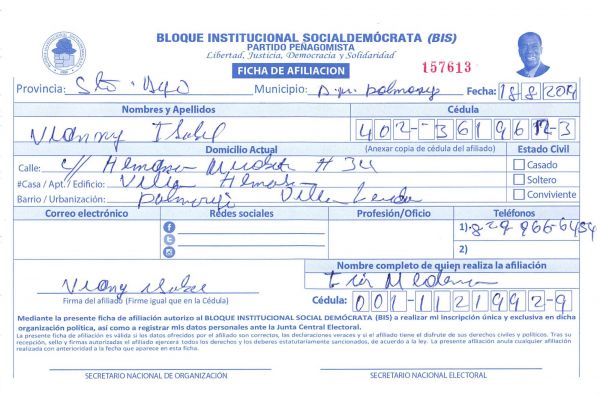 BLOQUE INSTITUCIONAL SOCIALDEMÓCRATA (BIS)
PARTIDO PEÑAGOMISTA
Libertad, Justicia, Democracia y Solidaridad
FICHA DE AFILIACION
157613
Provincia: Sto. Dgo Municipio: Fecha: 18-8-2014
Nombres y Apellidos Cédula
Vianny Isabel 402-3619612-3
Domicilio Actual (Anexar copia de cédula del afiliado) Estado Civil
Calle: C/ # 34 Casado
#Casa / Apt. / Edificio: Villa Soltero
Barrio / Urbanización: Villa Conviviente
Correo electrónico Redes sociales Profesión/Oficio Teléfonos
1) 829 966-6454
2)
Nombre completo de quien realiza la afiliación
Viany Isabel
Firma del afiliado (Firme igual que en la Cédula) Cédula: 001-1121992-9
Mediante la presente ficha de afiliación autorizo al BLOQUE INSTITUCIONAL SOCIAL DEMÓCRATA (BIS) a realizar mi inscripción única y exclusiva en dicha
organización política, así como a registrar mis datos personales ante la Junta Central Electoral.
La presente ficha de afiliación es válida si los datos ofrecidos por el afiliado son correctos, las declaraciones veraces y si el afiliado tiene el disfrute de sus derechos civiles y políticos. Tras su
recepción, sello y firmas autorizadas el afiliado ejercerá todos los derechos y los deberes estatutariamente sancionados, de acuerdo a la ley. La presente afiliación anula cualquier afiliación
realizada con anterioridad a la fecha que aparece en esta ficha.
SECRETARIO NACIONAL DE ORGANIZACIÓN SECRETARIO NACIONAL ELECTORAL